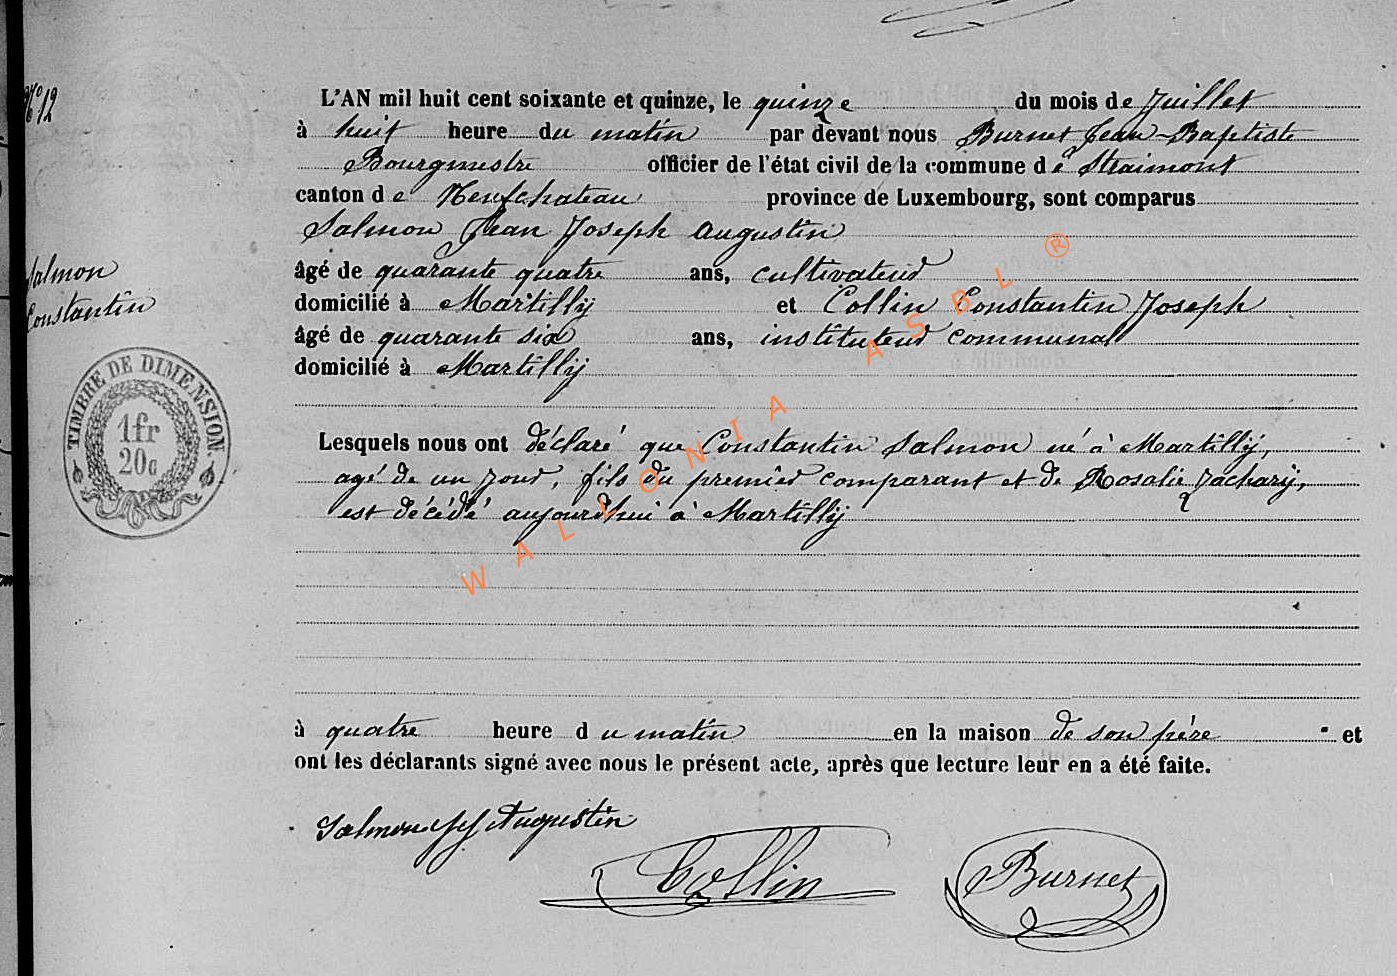 N° 12
L'AN mil huit cent soixante et quinze, le quinze du mois de Juillet
à huit heure du matin par devant nous Burnet Jean-Baptiste
Bourgmestre officier de l'état civil de la commune de Straimont
canton de Neufchateau province de Luxembourg, sont comparus
Salmon Jean Joseph Augustin
âgé de quarante quatre ans, cultivateur
domicilié à Martilly et Collin Constantin Joseph
âgé de quarante six ans, instituteur communal
domicilié à Martilly
Salmon
Constantin
TIMBRE DE DIMENSION.
1fr
20c
Lesquels nous ont déclaré que Constantin Salmon né à Martilly,
agé de un jour, fils du premier comparant et de Rosalie Jachary,
est décédé aujourd'hui à Martilly
à quatre heure du matin en la maison de son père et
ont les déclarants signé avec nous le présent acte, après que lecture leur en a été faite.
Salmon JJ Augustin
Collin
Burnet
WALLONIA ASBL ®